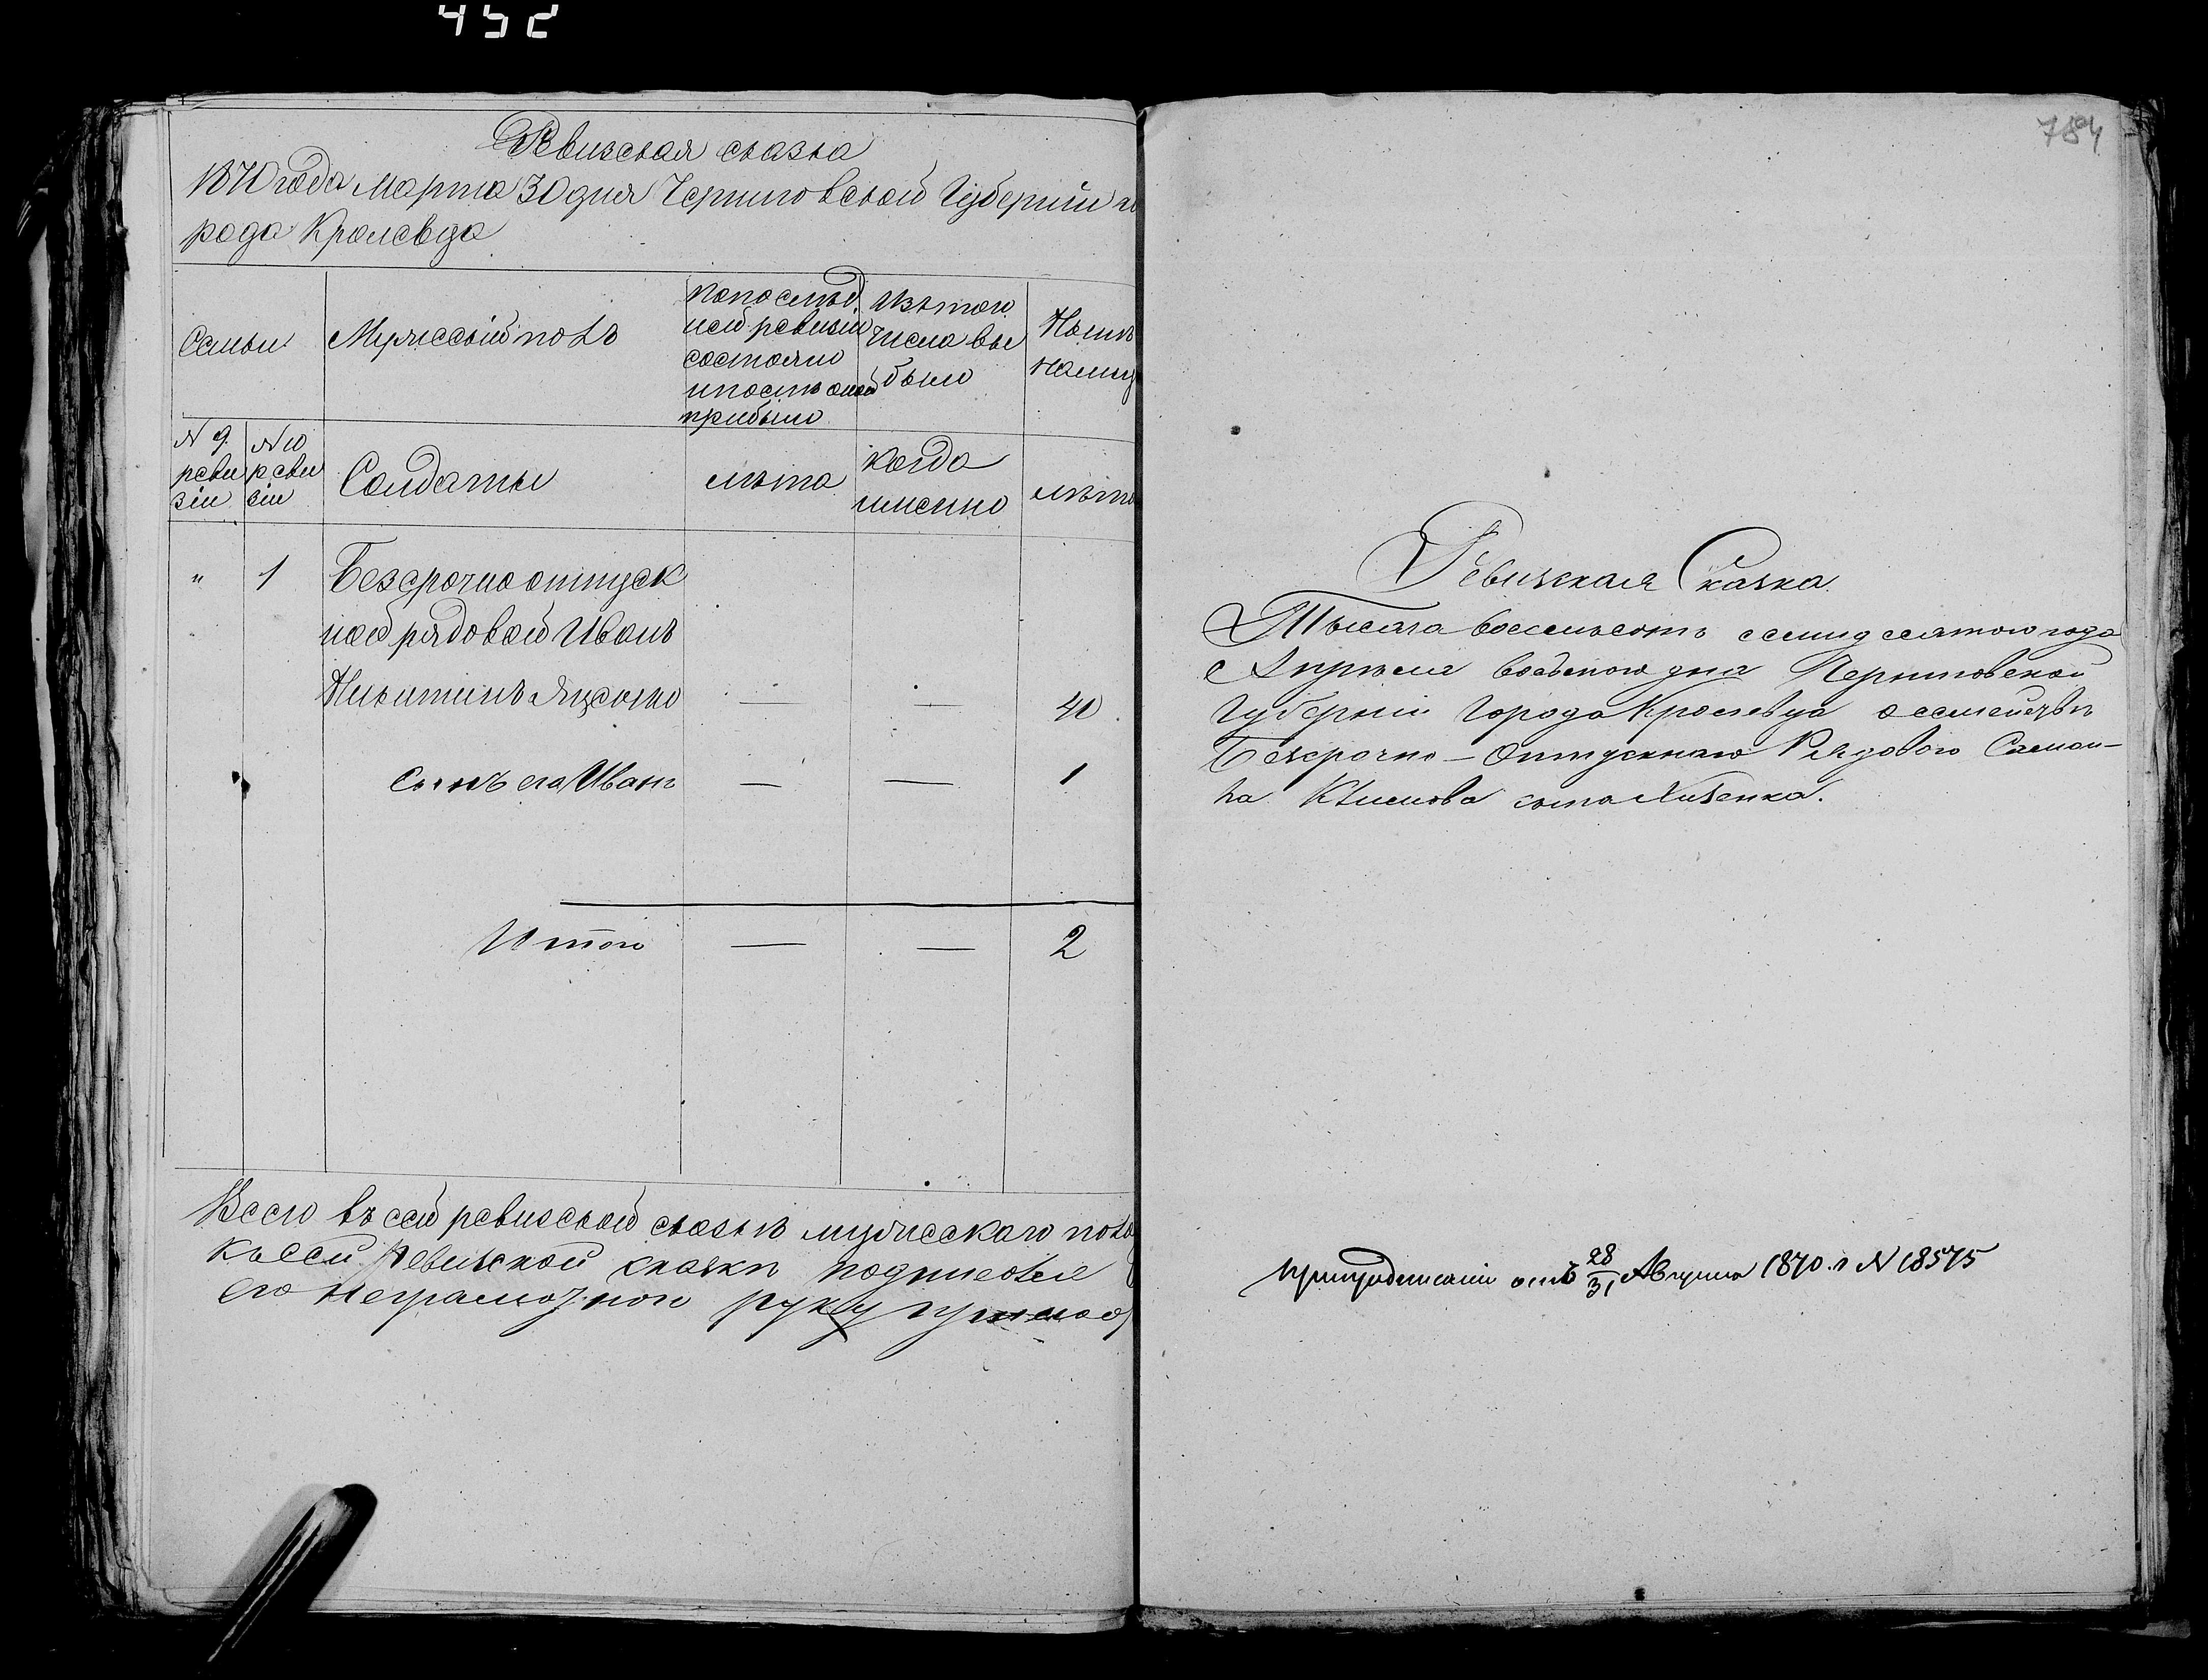 452
Ревизская сказка
1870 года Марта 30 дня Черниговской Губернии го
рода Кролевца
Семьи
Мужеский полъ
По послѣд
ней ревизіи
состояло
и послѣ оной
прибыло
Изъ того
числа вы
было
Нынѣ
на лиц
N 9
реви
зіи
N 10
реви
зіи
Солдаты
лѣта
когда
именно
лѣта
" 1 Безсрочно отпуск
ной рядовой Иванъ
Никитинъ Яцсотко — — 40
сынъ его Иванъ — — 1
Итого — — 2
Всего въ сей ревизской сказкѣ мужескаго пола
Къ сей Ревизской сказки подписовъ
его неграмотной руку прилож
784
Ревизская Сказка.
Тысяча восемьсотъ семидесятого года
Апреля восьмого дня Черниговской
Губерніи Города Кролевца о семействѣ
Безсрочно-Отпускнаго Рядового Самой-
ла Климова сына Хибенка.
При предписаніи отъ 28/31 Августа 1870 г N 18575